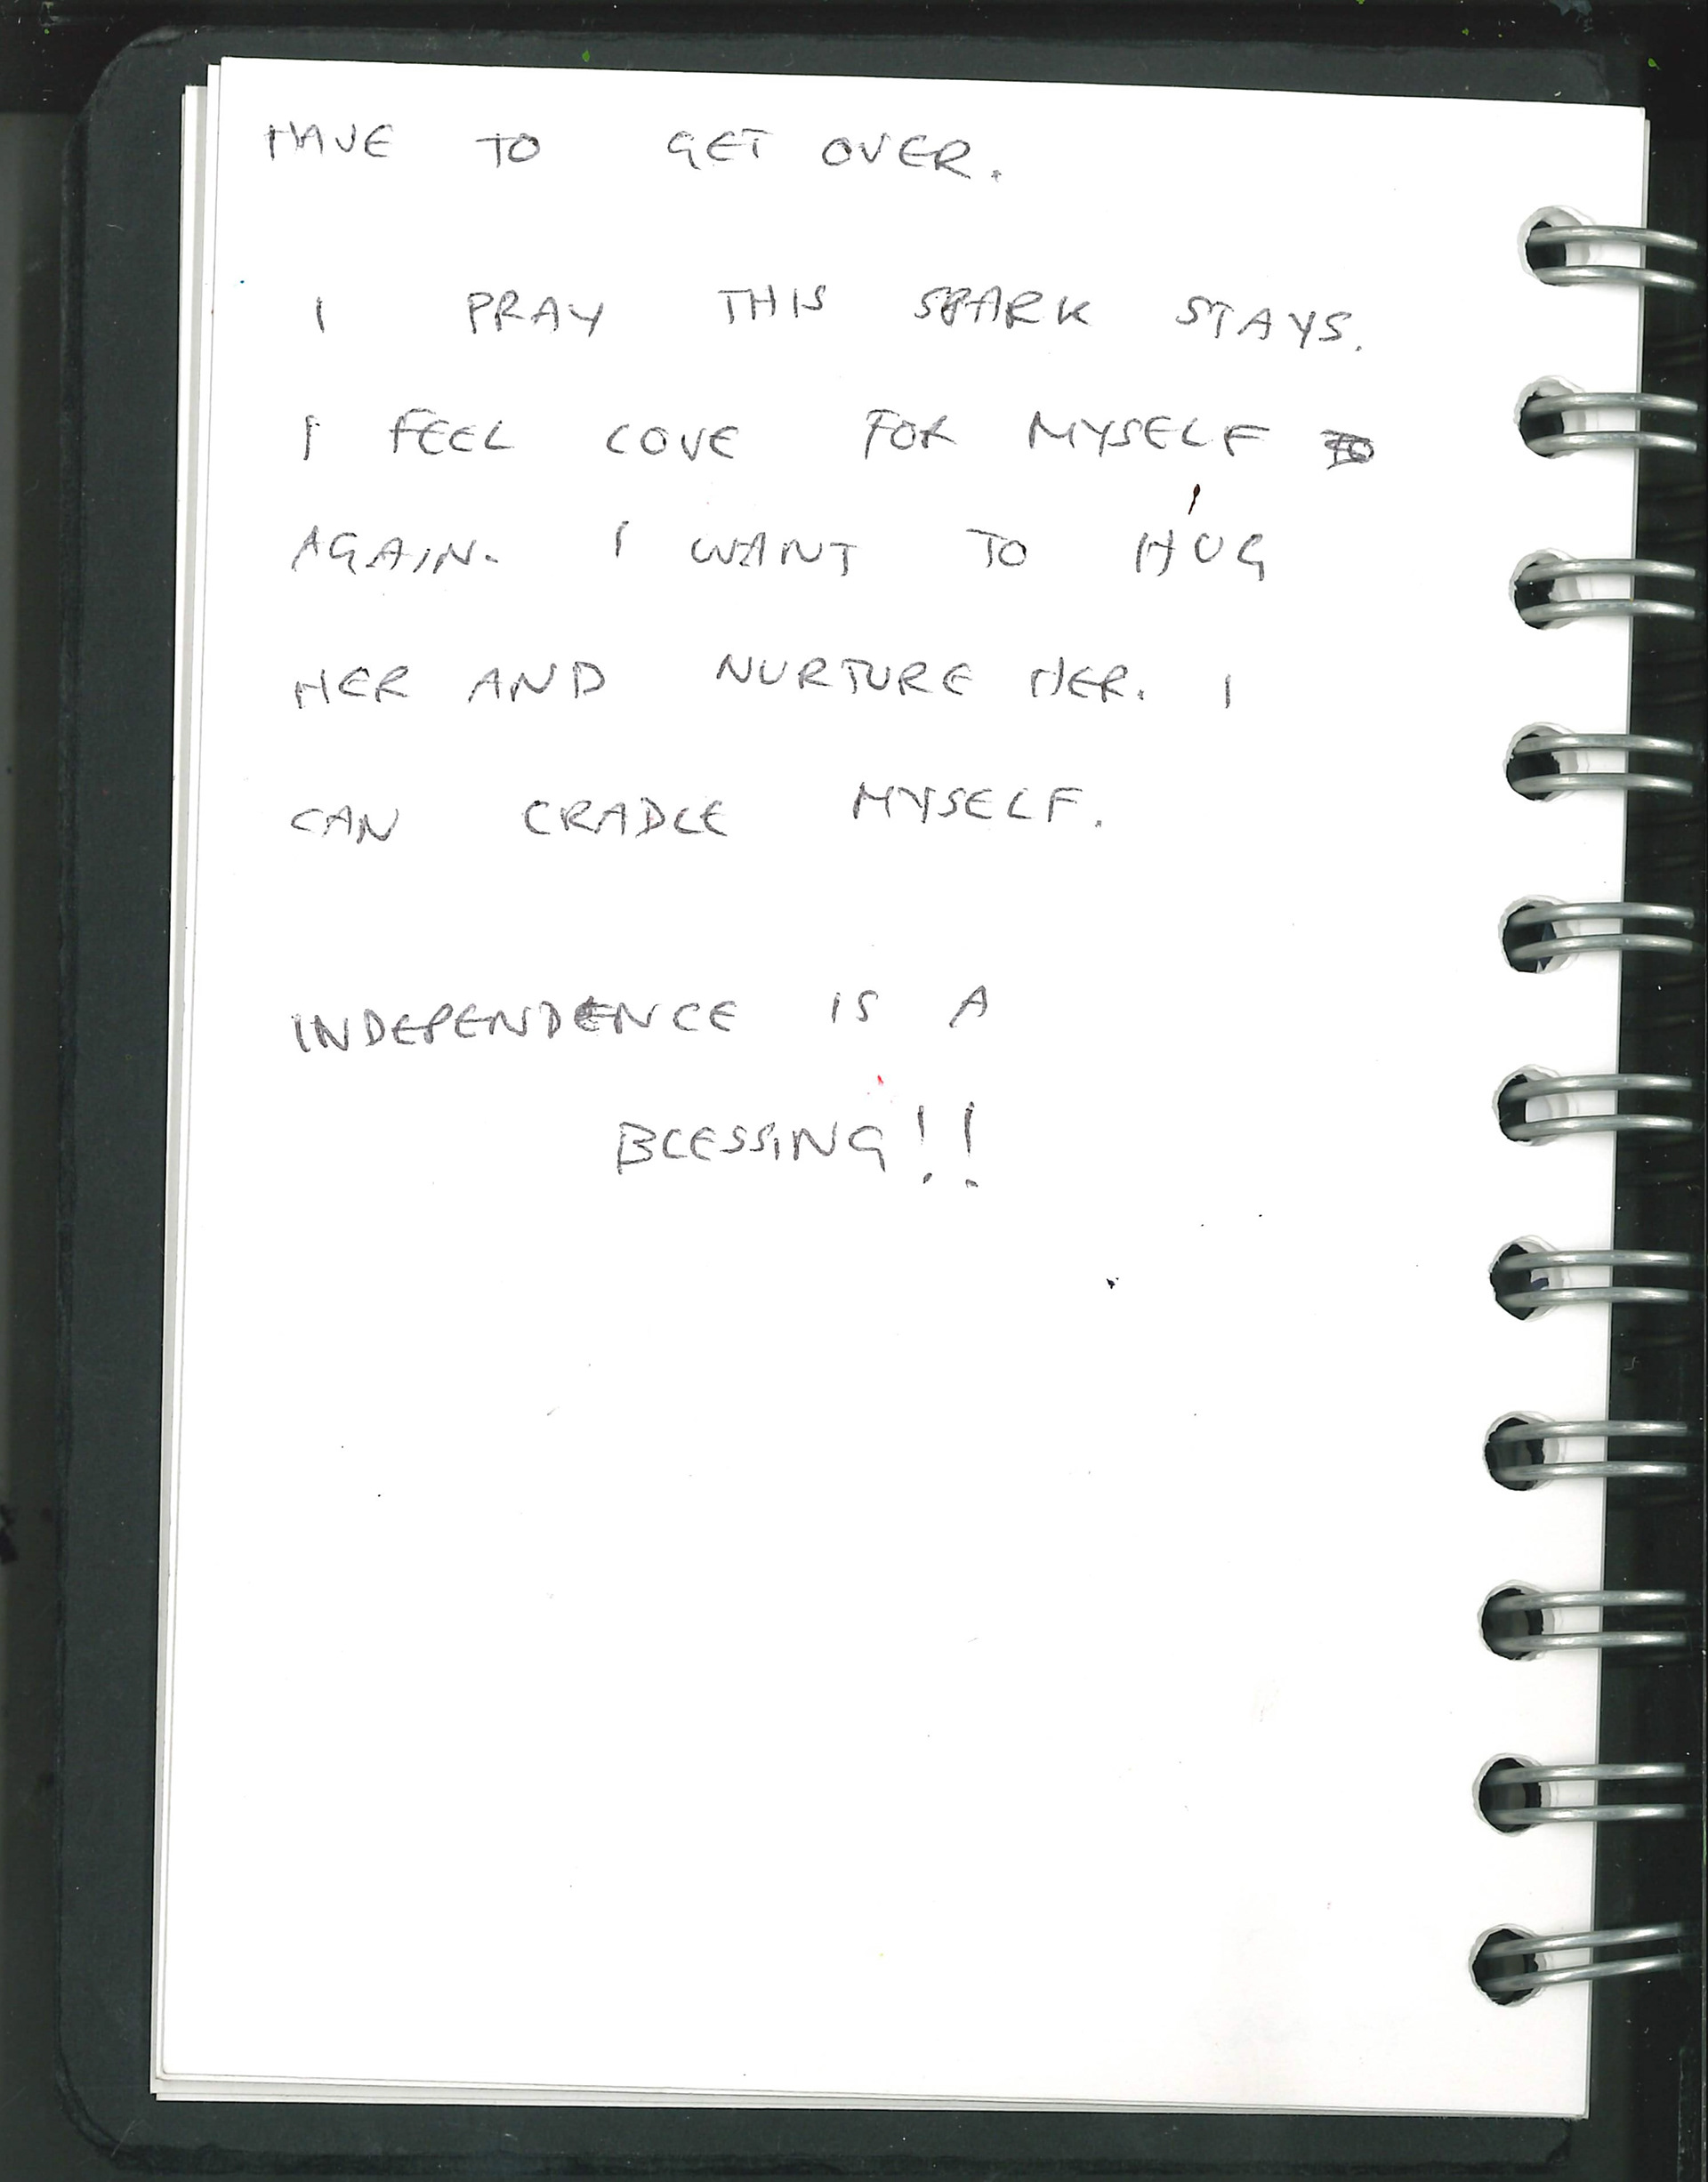 HAVE TO GET OVER.
I PRAY THIS SPARK STAYS.
I FEEL LOVE FOR MYSELF
AGAIN. I WANT TO HUG
HER AND NURTURE HER. I
CAN CRADLE MYSELF.
INDEPENDENCE IS A
BLESSING!!